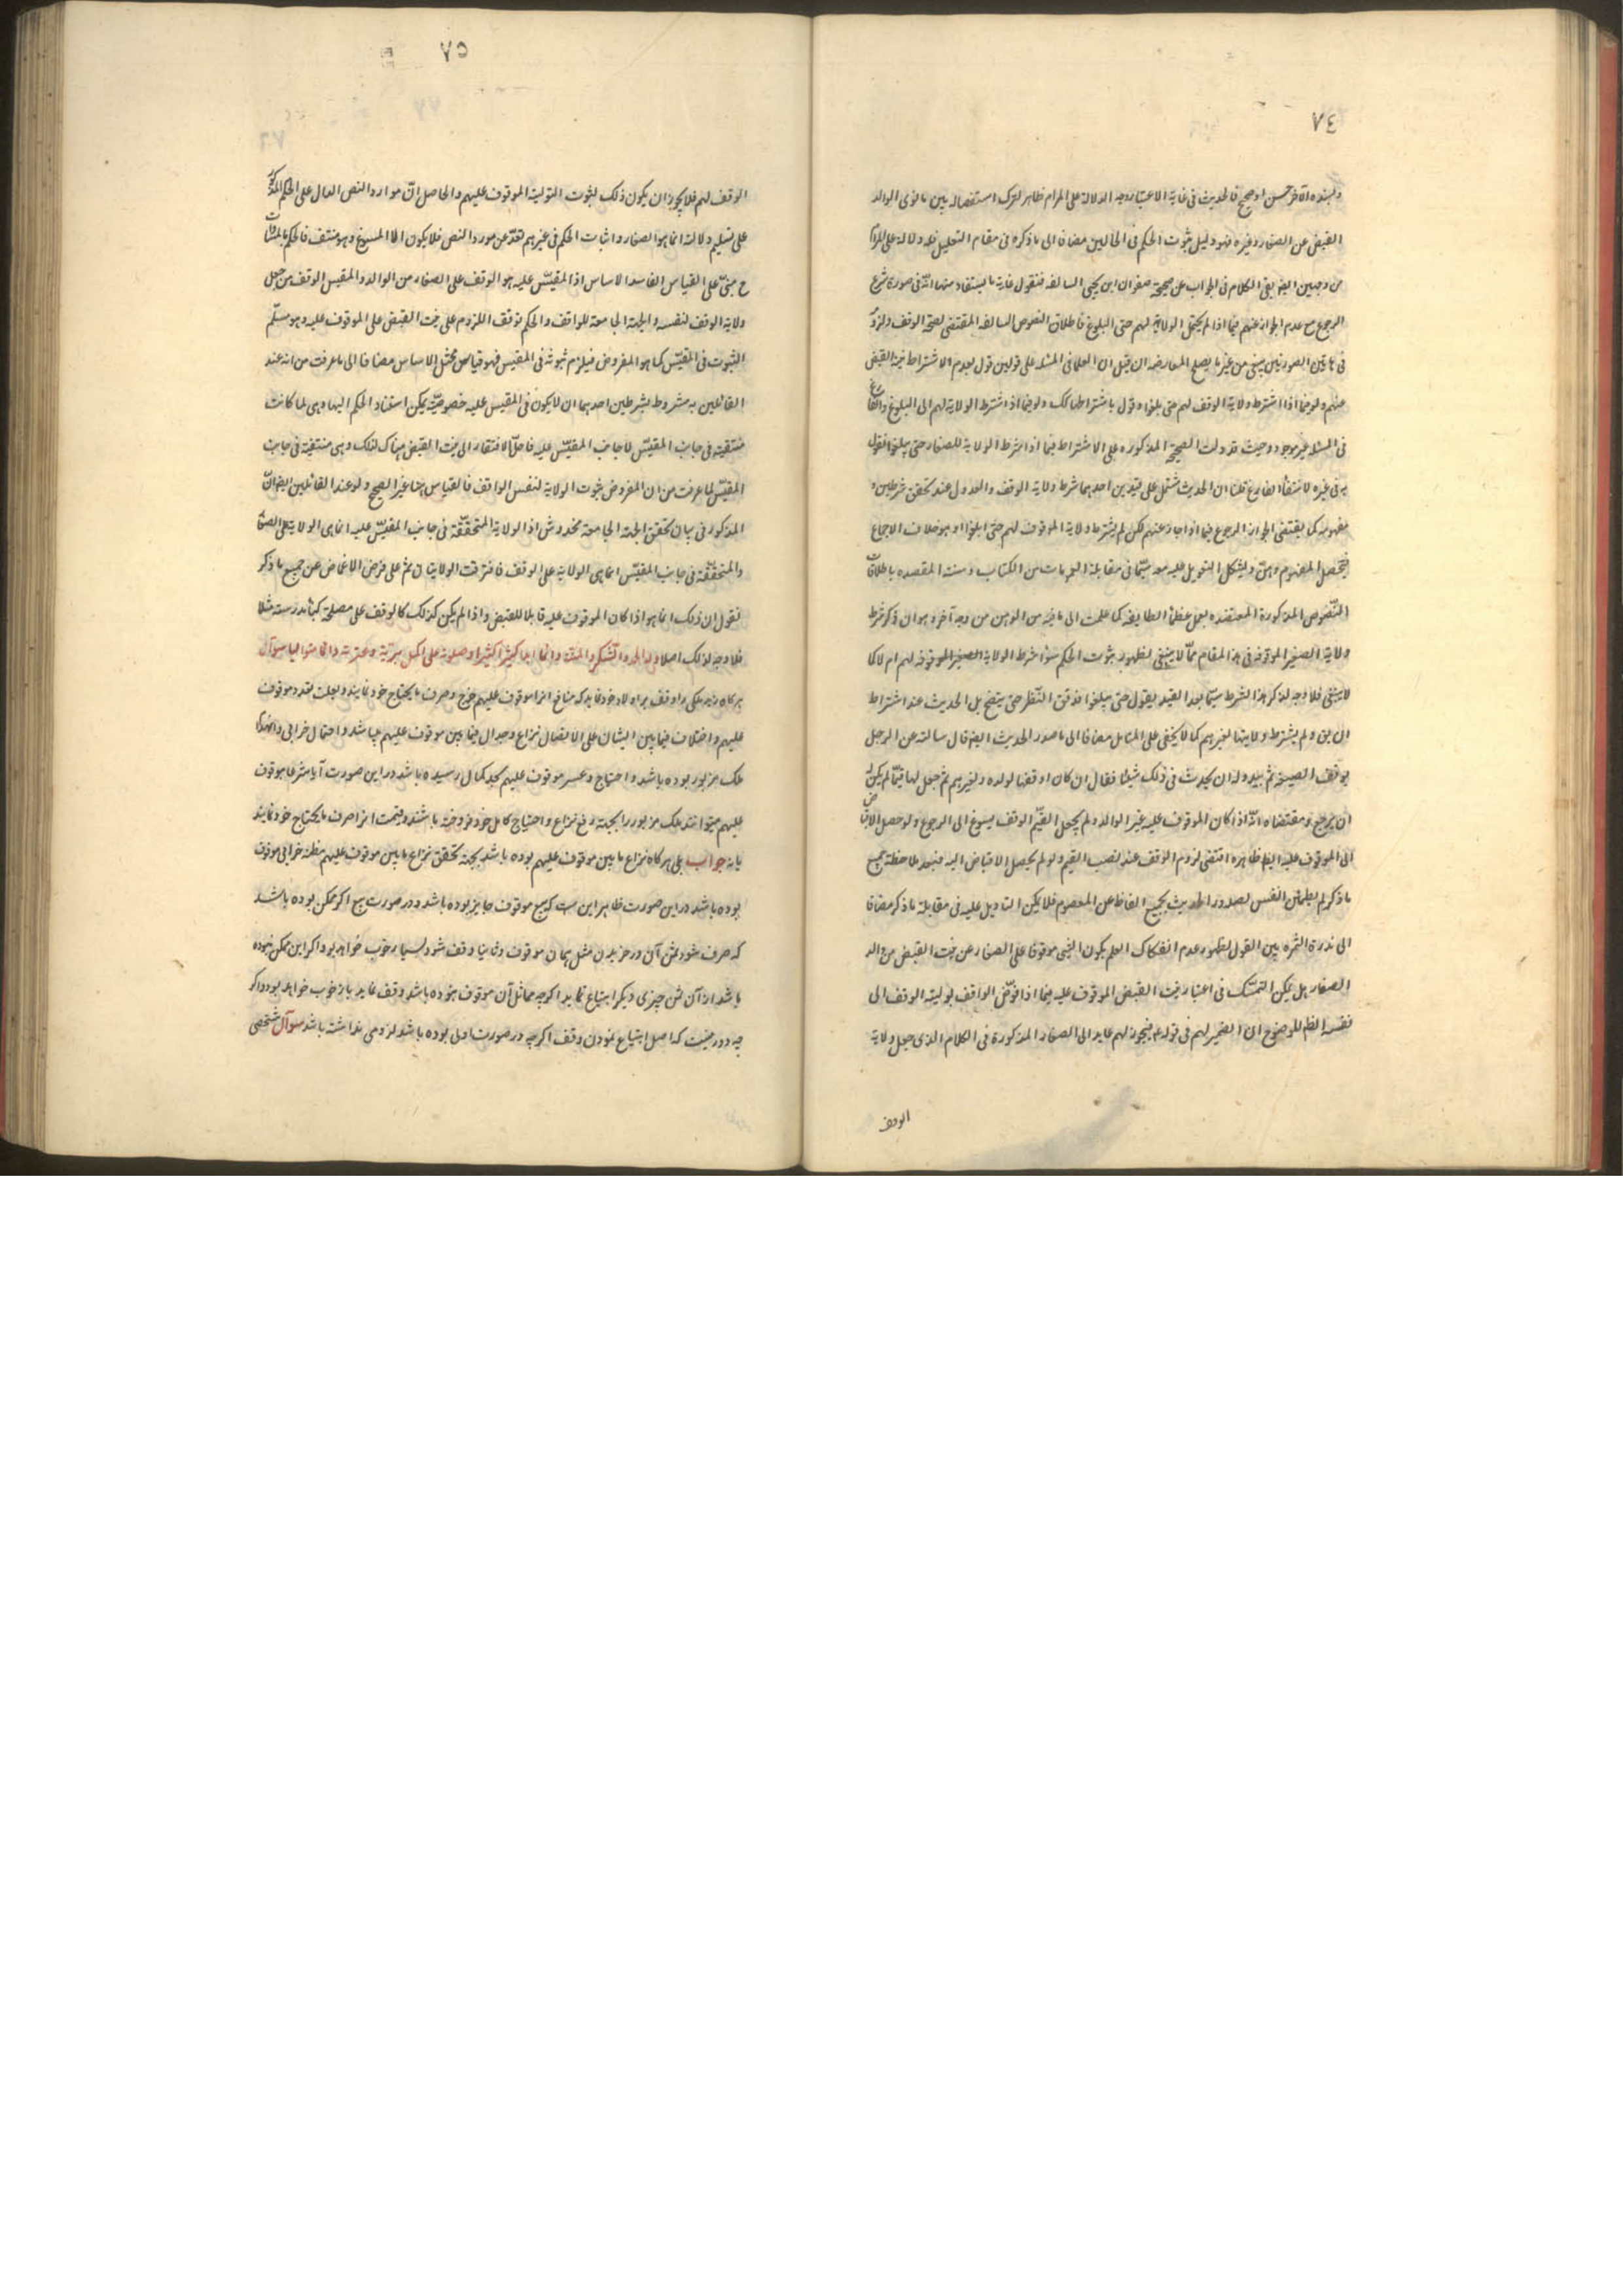 ٧٤
القبض عن الصغار وغيره فهو دليل ثبوت الحكم فى الحالين مضافا الى ما ذكره فى مقام التعليل
من وجهين ايضا بقى الكلام فى الجواب عن صحيحة صفوان ابن يحيى السالفه فنقول غاية ما يستفاد منها انه فى صورة شرع
الرجوع مع عدم الجواز عنهم فيما اذا لم يجعل الولاية لهم حتى البلوغ فاطلاق النصوص السالفه المقتضى لصحة الوقف
فى هاتين الصورتين يبقى من غير ما يصلح المعارضه ان قيل ان العلماء فى المسئله على قولين قول بعدم الاشتراط
عنهم ولو فيما اذا اشترط ولاية الوقف لهم حتى بلغوا وقول باشتراطها كك ولو فيما اذا اشترط الولاية لهم الى البلوغ
فى المسئله غير موجود وحيث قد دلت الصحيحة المذكوره على الاشتراط فيما اذا شرط الولاية للصغار حتى يبلغوا فنقول
به فى غيره لانتفاء الفارق قلنا ان الحديث مشتمل على قيدين احدهما شرط ولاية الوقف والعدول عند تحقق شرطين و
مفهومه كما يقتضى الجواز الرجوع فيما اذا جاز عنهم لكن لم يشترط ولاية الموقوف لهم حتى ابلغوا وهو خلاف الاجماع
النصوص المذكورة المعتضده بعمل عظماء الطايفه كما علمت الى ما فيه من الوهن من وجه آخر وهو ان ذكر شرط
ولاية الصغير الموقوفه فى هذا المقام مما لا ينبغى لظهور ثبوت الحكم سواء شرط الولاية الصغير الموقوفه لهم ام لا كما
لا يبتغى فلا وجه لذكر هذا الشرط سيما بعد القيد بقول حتى يبلغوا فدقق النظر حتى يتضح بل الحديث عند اشتراط
ولم يشترط ولايتها لغيرهم كما لا يخفى على المتامل مضافا الى ما صدر الحديث ايضا قال سالته عن الرجل
يوقف الضيعة ثم يبدو له ان يحدث فى ذلك شيئا فقال ان كان اوقفها لولده ولغيرهم ثم جعل لها قيما لم يكن له
ان يرجع ومقتضاه انه اذا كان الموقوف عليه غير الوالد ولم يجعل القيم الوقف يسوغ الى الرجوع ولو حصل
الى الموقوف عليه ايضا ظاهره اقتضى لزوم الوقف عند نصب القيم ولو لم يحصل الاقباض اليه فبعد ملاحظة جميع
ما ذكر لم يطمئن النفس لصدور الحديث بجميع الفاظه عن المعصوم فلا يمكن التاويل عليه فى مقابلة ما ذكر مضافا
الى ندرة الثمره بين القول لظهور عدم انفكاك العلم بكون الشئ موقوفا على الصغار عن نيت القبض من الد
الصغار بل يمكن التمسك فى اعتبار نيت القبض الموقوف عليه فيما اذا فوض الواقف توليته الوقف الى
نفسه للوضوح ان الضمير لهم فى قوله فيجوز لهم عايد الى الصغار المذكورة فى الكلام الذى جعل ولاية
الوقف
٧٥
الوقف لهم فلا يجوز ان يكون ذلك لثبوت التولية الموقوف عليهم والحاصل ان موارد النص الدال على الحكم المذكور
على تسليم دلالته انما هو الصغار واثبات الحكم فى غيرهم تعد عن مورد النص فلا يكون الا المسوغ وهو منتف فالحكم
ح مبنى على القياس الفاسد الاساس اذ المقيس عليه هو الوقف على الصغار من الوالد والمقيس الوقف من جعل
ولاية الوقف لنفسه والجهة الجامعة للواقف والحكم توقف اللزوم على نيت القبض على الموقوف عليه وهو مسلم
الثبوت فى المقيس كما هو المفروض فيلزم ثبوته فى المقيس فهو قياس مختل الاساس مضافا الى ما عرفت من انه عند
القائلين به مشروط بشرطين احدهما ان لا يكون فى المقيس عليه خصوصية يمكن استناد الحكم اليها وهى لما كانت
منتفية فى جانب المقيس لا جانب المقيس عليه فاصلا لافتقار الى نيت القبض هناك لذلك وهى منتفية فى جانب
المقيس لما عرفت من ان المفروض ثبوت الولاية لنفس الواقف فالقياس هنا غير الصحيح ولو عند القائلين ايضا ان
المذكور فى بيان تحقق الجهة الجامعة مخدوش اذ الولاية المتحققة فى جانب المقيس عليه انما هى الولاية على
والمتحققة فى جانب المقيس انما هى الولاية على الوقف فافترقت الولايتان ثم على فرض الاغماض عن جميع ما ذكر
نقول ان ذلك انما هو اذا كان الموقوف عليه قابلا للقبض واذا لم يكن كذلك كالوقف على مصلحة كبناء مدرسة مثلا
فلا وجه لذلك اصلا وله الحمد والشكر والمنة دائما ابدا كثيرا كثيرا وصلوته على اكمل بريته وعترته دائما متواليا سوآل
هر كاه زيد ملكى را وقف بر اولاد خود نمايد كه منافع انرا موقوف عليهم خرج وصرف ما يحتاج خود نمايند وبعلت تعدد موقوف
عليهم واختلاف فيما بين ايشان على الاتصال نزاع وجدال فيما بين موقوف عليهم ميباشد واحتمال خرابى
ملك مزبور بوده باشد واحتياج وعسر موقوف عليهم بحد كمال رسيده باشد در اين صورت آيا شرعا موقوف
عليهم ميتوانند ملك مزبور را بجهة رفع نزاع واحتياج كامل خود فروخته باشند وقيمت انرا صرف ما يحتاج خود نمايند
يا نه جواب بلى هر كاه نزاع ما بين موقوف عليهم بوده باشد بجهة تحقق نزاع ما بين موقوف عليهم مظنه خرابى موقوف
بوده باشد در اين صورت ظاهر اين است كه بيع موقوف جايز بوده باشد ودر صورت بيع اكر ممكن بوده باشد
كه صرف شود ثمن آن در خريدن مثل همان موقوف وثانيا وقف شود بسيار خوب خواهد بود واكر اين ممكن نبوده
باشد از آن ثمن چيزى ديكر ابتياع نمايد اكرچه مماثل آن موقوف نبوده باشد وقف نمايد باز خوب خواهد بود واكر
چه دور نيست كه اصل ابتياع نمودن وقف اكرچه در صورت اول بوده باشد لزومى نداشته باشد سوآل شخصى